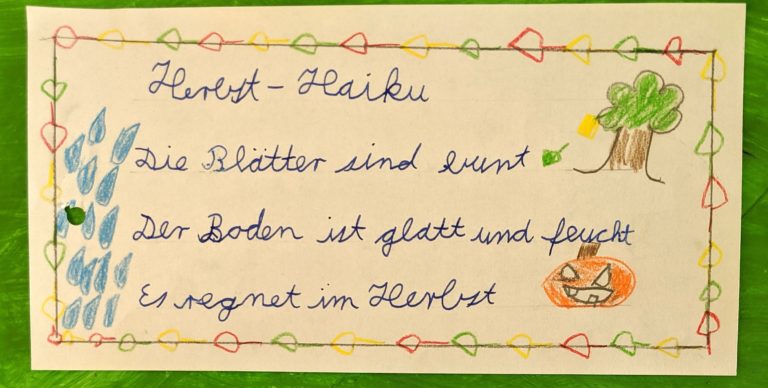 Herbst-Haiku
Die Blätter sind bunt
Der Boden ist glatt und feucht
Es regnet im Herbst